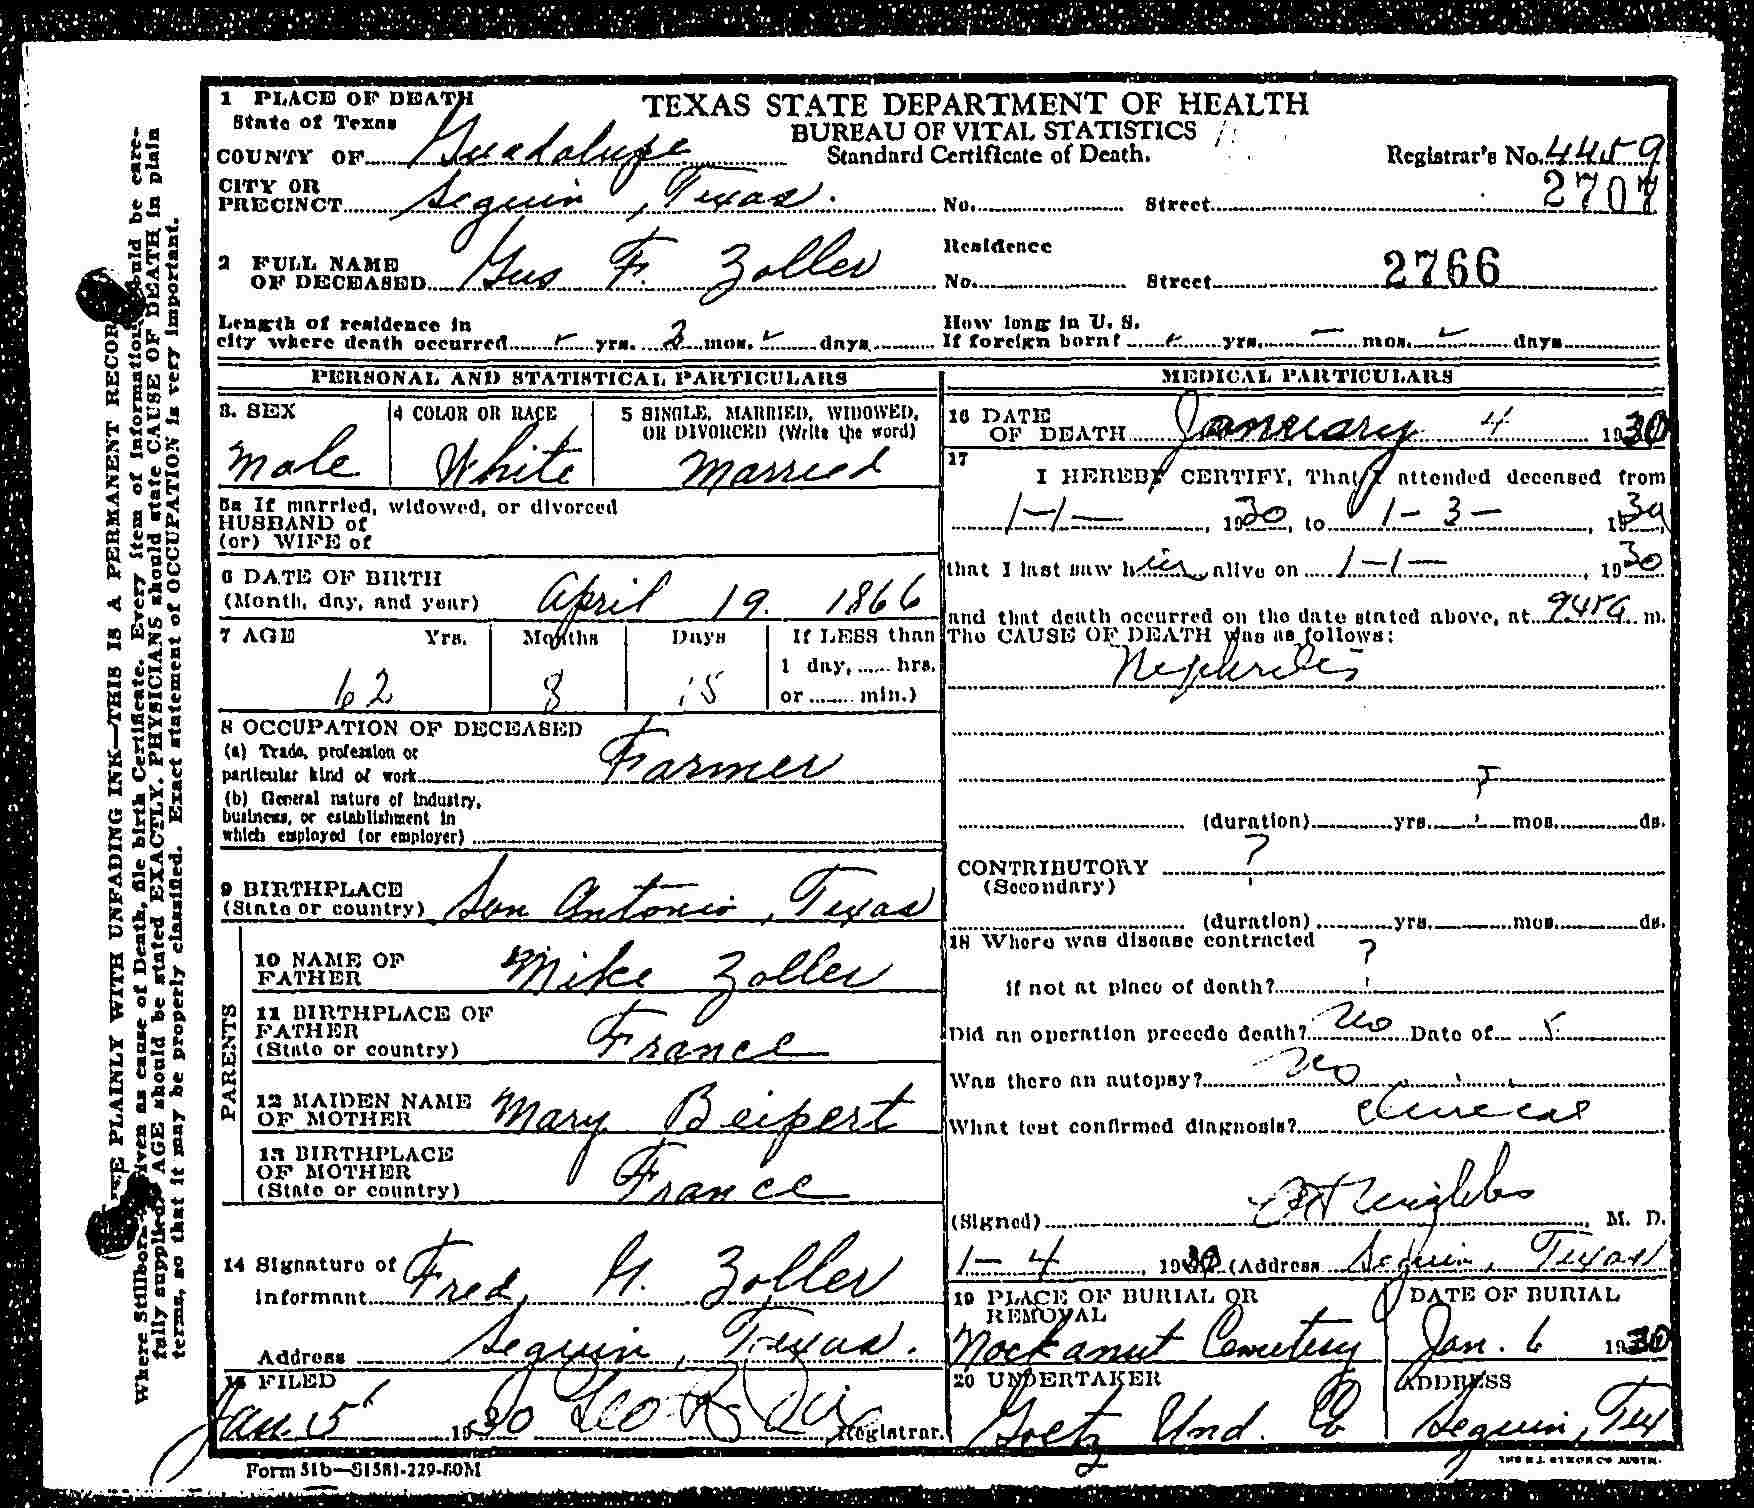 1 PLACE OF DEATH
State of Texas
TEXAS STATE DEPARTMENT OF HEALTH
BUREAU OF VITAL STATISTICS
Standard Certificate of Death.
COUNTY OF Guadalupe
Registrar's No. 4459
2707
CITY OR
PRECINCT Seguin, Texas.
No. Street
2 FULL NAME
OF DECEASED Gus F. Zoller
Residence
No. Street 2766
Length of residence in
city where death occurred yrs. 3 mos. days
How long in U. S.
If foreign born? yrs. mos. days
PERSONAL AND STATISTICAL PARTICULARS
3. SEX
Male
4 COLOR OR RACE
White
5 SINGLE, MARRIED, WIDOWED,
OR DIVORCED (Write the word)
Married
5a If married, widowed, or divorced
HUSBAND of
(or) WIFE of
6 DATE OF BIRTH
(Month, day, and year) April 19. 1866
7 AGE Yrs. Months Days
62 8 15
If LESS than
1 day, ...... hrs.
or ....... min.)
8 OCCUPATION OF DECEASED
(a) Trade, profession or
particular kind of work Farmer
(b) General nature of Industry,
business, or establishment in
which employed (or employer)
9 BIRTHPLACE
(State or country) San Antonio, Texas
PARENTS
10 NAME OF
FATHER Mike Zoller
11 BIRTHPLACE OF
FATHER
(State or country) France
12 MAIDEN NAME
OF MOTHER Mary Beipert
13 BIRTHPLACE
OF MOTHER
(State or country) France
14 Signature of
Informant Fred H. Zoller
Address Seguin, Texas.
15 FILED
Jan. 5 1930 Geo Registrar.
MEDICAL PARTICULARS
16 DATE
OF DEATH January 4 1930
17
I HEREBY CERTIFY, That I attended deceased from
1-1- , 1930, to 1-3- , 1930
that I last saw him alive on 1-1- , 1930
and that death occurred on the date stated above, at 945a m.
The CAUSE OF DEATH was as follows:
Nephritis
?
(duration) yrs. mos. ds.
CONTRIBUTORY ?
(Secondary)
(duration) yrs. mos. ds.
18 Where was disease contracted
if not at place of death? ?
Did an operation precede death? No Date of
Was there an autopsy? No
What test confirmed diagnosis? clinical
(Signed) , M. D.
1-4 , 1930 (Address Seguin, Texas
19 PLACE OF BURIAL OR
REMOVAL
Nockanut Cemetery
DATE OF BURIAL
Jan. 6 1930
20 UNDERTAKER
Goetz Und. Co
ADDRESS
Seguin, Tex
Form 51b—S1581-229-50M
WITH UNFADING INK—THIS IS A PERMANENT RECORD